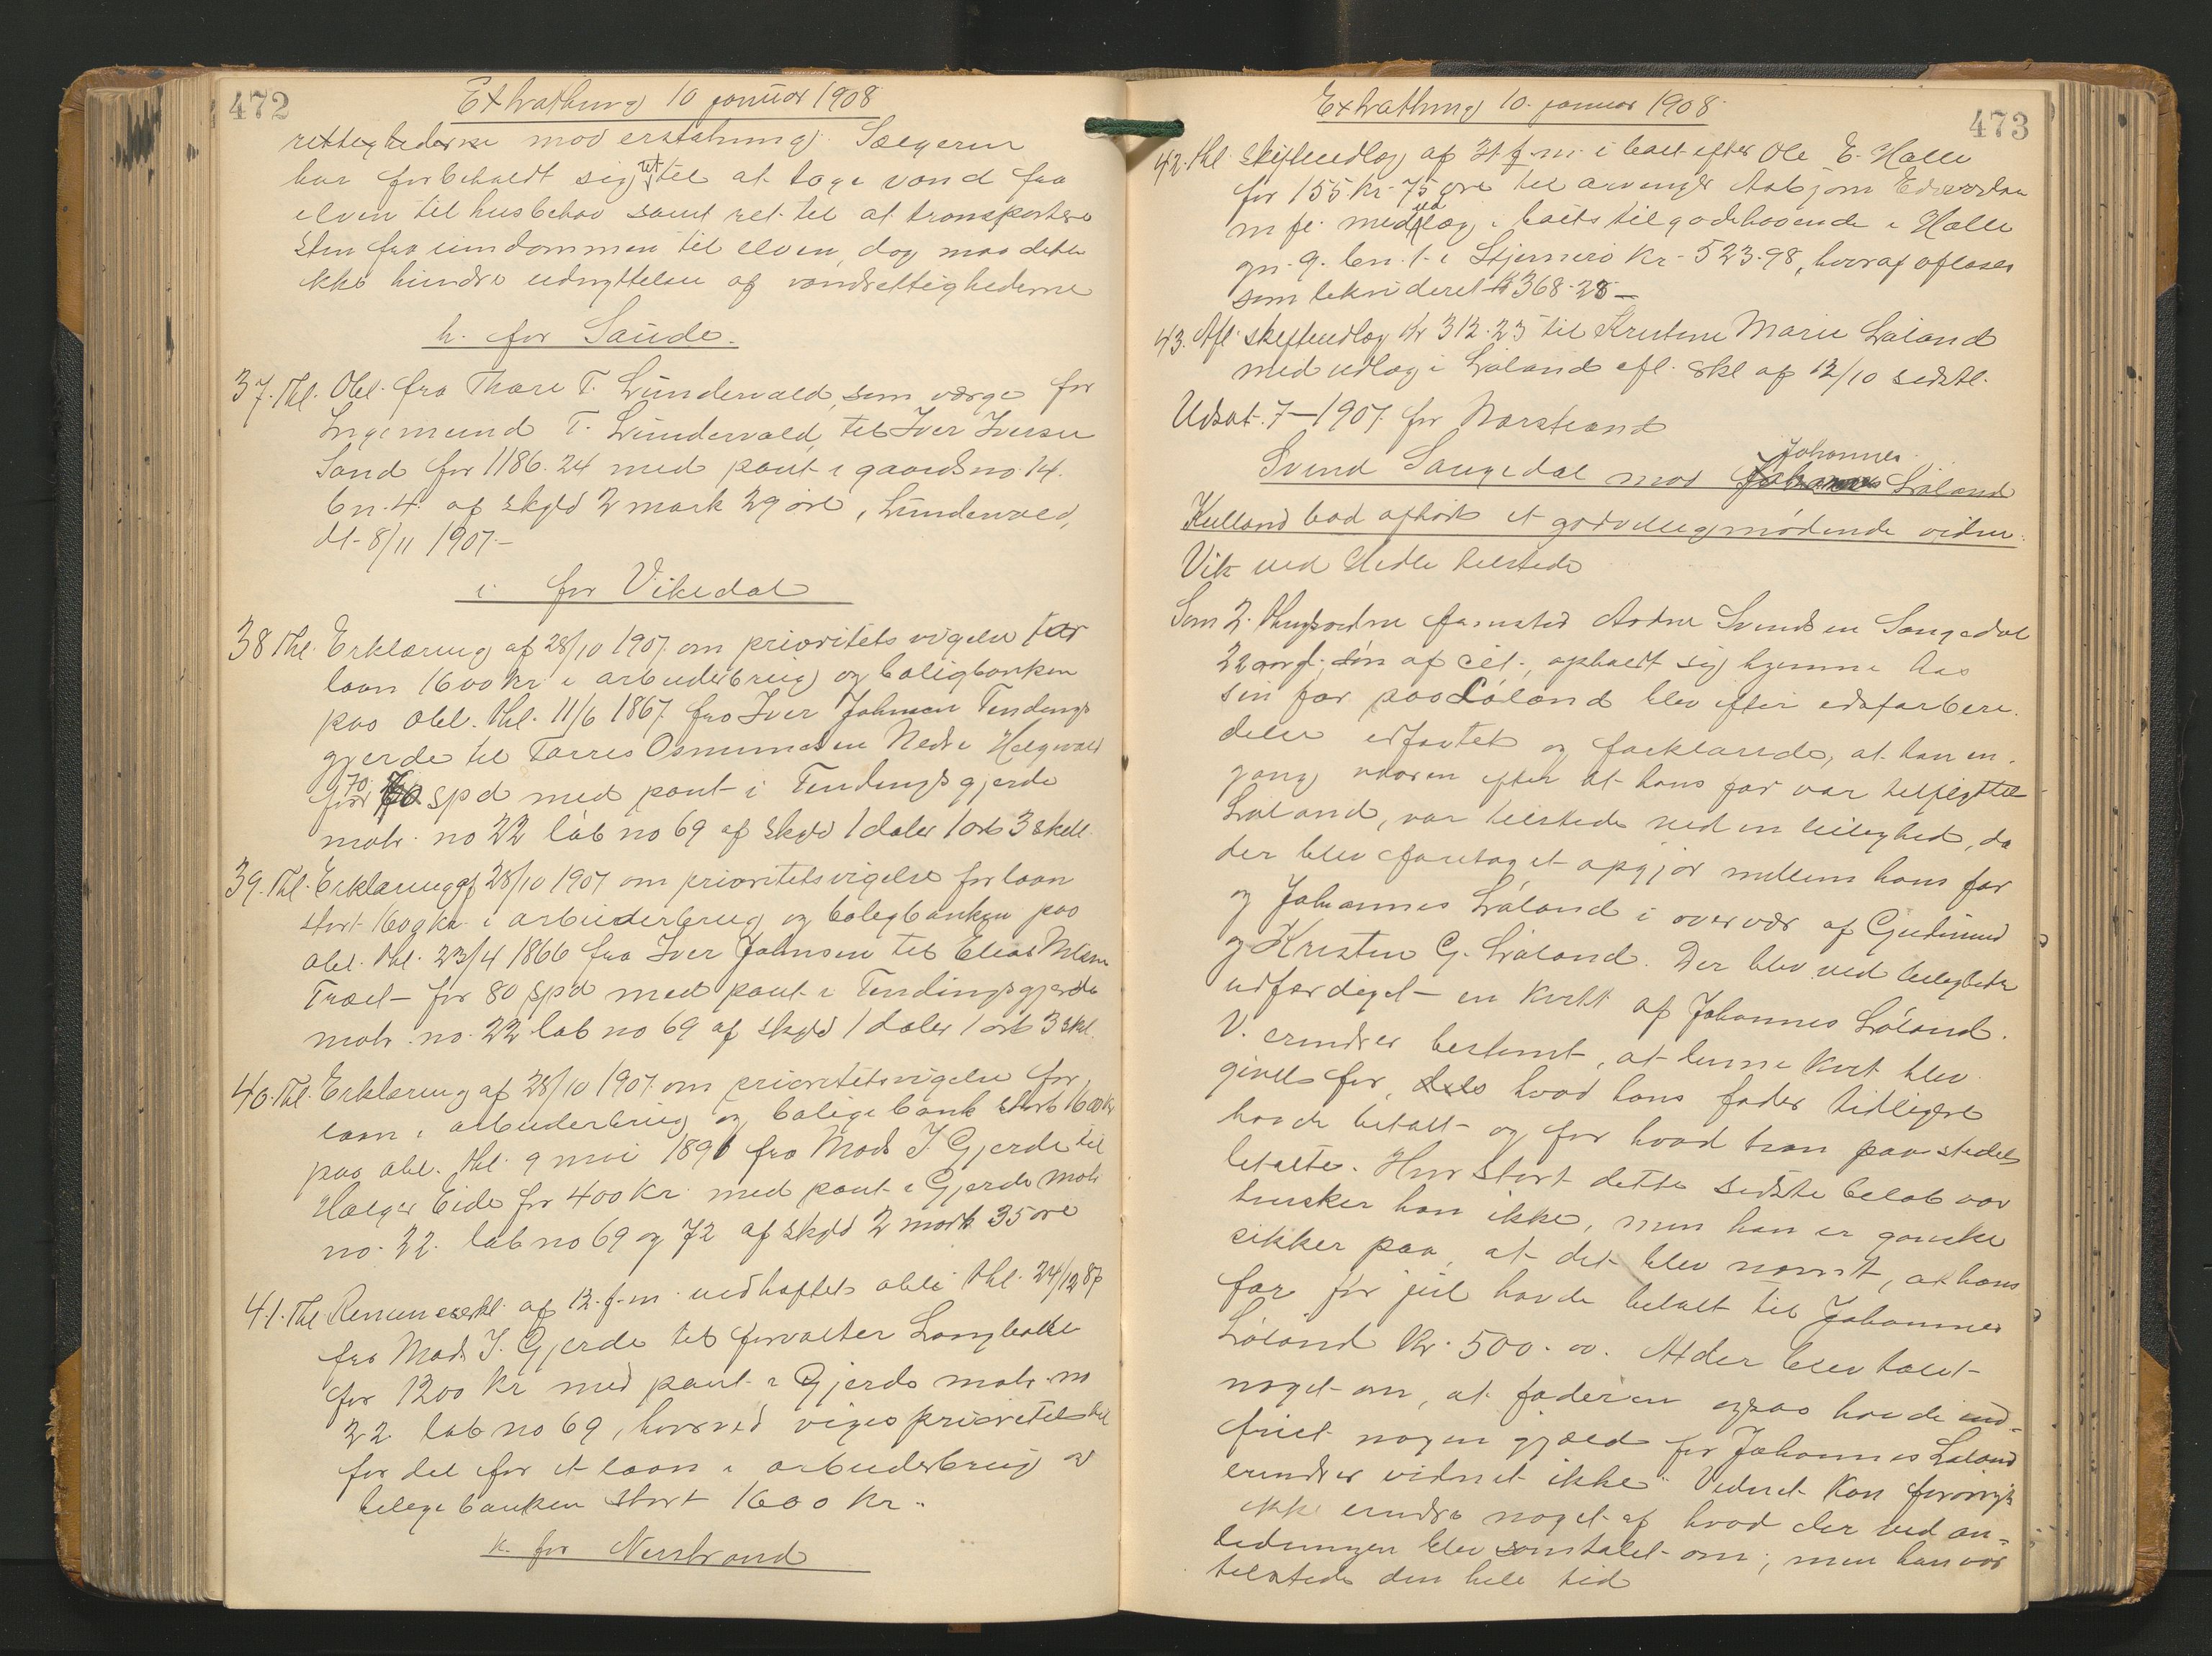 472
Extrathing 10 januar 1908
rettighederne mod erstatning. Sælgeren
har forbeholdt sig ret til at tage vand fra
elven til husbehov samt ret til at transportere
sten fra eiendommen til elven, dog maa dette
ikke hindre udnyttelsen af vandrettighederne
h. for Saude.
37. Thl. Obl. fra Thore T. Lundervold, som værge for
Ingemund T. Lundervold, til Iver Iversen
Sand for 1186.24 med pant i gaards no 14.
bn. 4 af skyld 2 mark 29 øre, Lundervold,
dt. 8/11 1907.-
i for Vikedal
38 Thl. Erklæring af 28/10 1907 om prioritets vigelse for
laan 1600 kr i arbeiderbrug og boligbanken
paa obl. thl. 11/6 1867 fra Iver Johnsen Tendings
gjerde til Torres Osmundsen Nedre Helgevold
for 70 spd med pant i Tendingsgjerde
matr. no 22 løb no 69 af skyld 1 daler 1 ort 3 skill.
39. Thl. Erklæring af 28/10 1907 om prioritetsvigelse for laan
stort 1600 kr i arbeiderbrug og boligbanken paa
obl. thl. 23/4 1866 fra Iver Johnsen til Elias Nilsen
Træet – for 80 spd med pant i Tendingsgjerde
matr. no. 22 løb no 69 af skyld 1 daler 1 ort 3 skl.
40. Thl. Erklæring af 28/10 1907 om prioritetsvigelse for
laan i arbeiderbrug og boligebank stort 1600 kr
paa obl. thl. 9 mai 1891 fra Mads J. Gjerde til
Holger Eide for 400 kr med pant i Gjerde matr
no. 22. løb no 69 og 72 af skyld 2 mark 35 øre
41. Thl. af 12. f.m. vedhæftet obli thl. 24/12 87
fra Mads J. Gjerde til forvalter
for 1200 kr med pant i Gjerde matr. no
22 løb no 69, hvorved viges prioritet til
fordel for et laan i arbeiderbrug og
boligebanken stort 1600 kr.
k. for Nerstrand
473
Extrathing 10. januar 1908.
42. Thl. skifteudlæg af f.m. i boet efter Ole E. Halle
for 155 kr. 75 øre til arvinger Asbjørn
m fl. med udlæg i boets tilgodehavende i Halle
gn. 9. bn. 1. i Stjernerø kr. 523.98, hvoraf afløses
som kr 368.28 –
43. Afl. skifteudlæg kr 312.23 til Kristine Marie Løland
med udlæg i Løland efl. skl af 12/10 sidstl.
Udsat. 7–1907. for Narstrand
Svend Saugedal mod Johannes Løland
Kielland bad afhørt et godvillig mødende vidne.
Vik ved Hidle tilstede
Som 2. thingsvidne fremsted Andre Svendsen Saugedal
22 aar gl., søn af cit., opholdt sig hjemme hos
sin far paa Løland blev efter edsforbere.
delse edfæstet og forklarede, at han en.
gang vaaren efter at hans far var tilflyttet
Løland, var tilstede ved en leilighed, da
der blev foretaget opgjør mellem hans far
og Johannes Løland i overvær af Gudmund
og Kristen G. Løland. Der blev ved leiligheden
udfærdiget – en kvitt af Johannes Løland.
V. erindrer bestemt, at denne kvit blev
givet for, dels hvad hans fader tidligere
havde betalt – og for hvad han paa stedet
betalte. Hvor stort dette sidste beløb var
husker han ikke, men han er ganske
sikker paa, at det blev nævnt, at hans
far før jul havde betalt til Johannes
Løland kr. 500.00. At der blev talt
noget om, at faderen ogsaa havde ind-
friet nogen gjæld for Johannes Løland
erindrer vidnet ikke. Vidnet kan forøvrigt
ikke erindre noget af hvad der ved an-
ledningen blev samtalet om, men han var
tilstede den hele tid